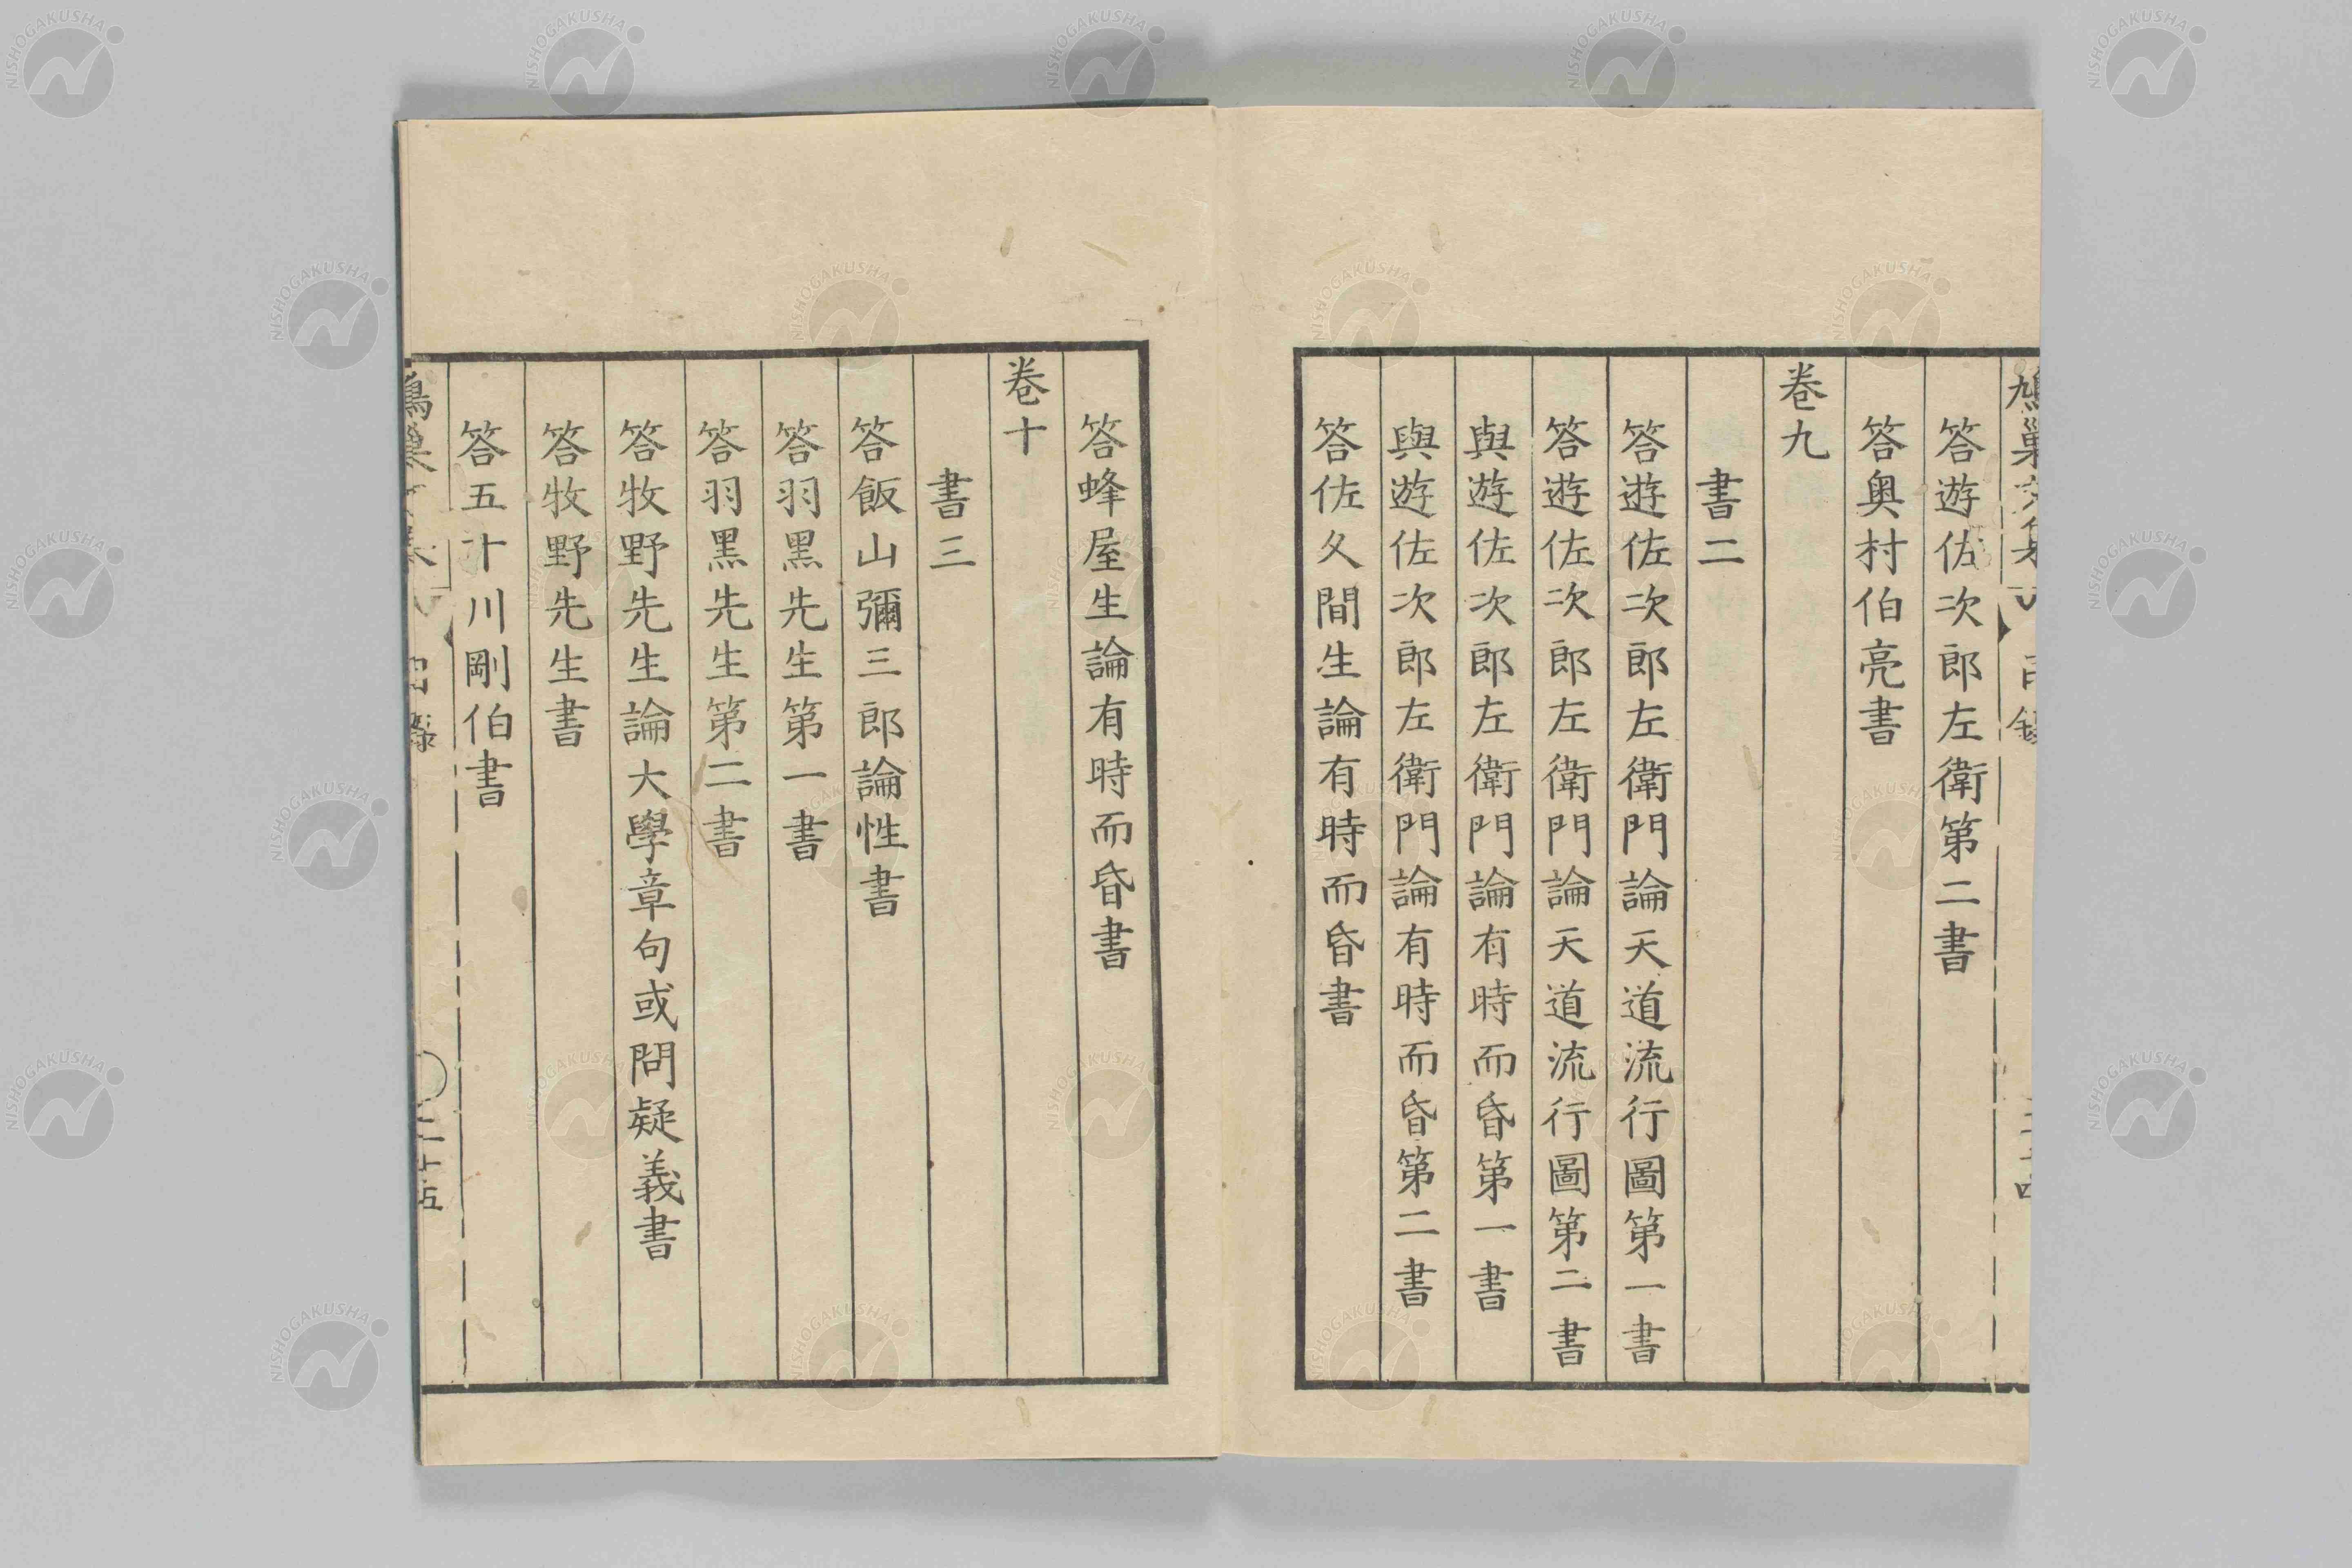 答遊佐次郎左衛第二書
答奥村伯亮書
卷九
書二
答遊佐次郎左衛門論天道流行圖第一書
答遊佐次郎左衛門論天道流行圖第二書
與遊佐次郎左衛門論有時而昏第一書
與遊佐次郎左衛門論有時而昏第二書
答佐久間生論有時而昏書
答蜂屋生論有時而昏書
卷十
書三
答飯山彌三郎論性書
答羽黑先生第一書
答羽黑先生第二書
答牧野先生論大學章句或問疑義書
答牧野先生書
答五十川剛伯書
NISHOGAKUSHA